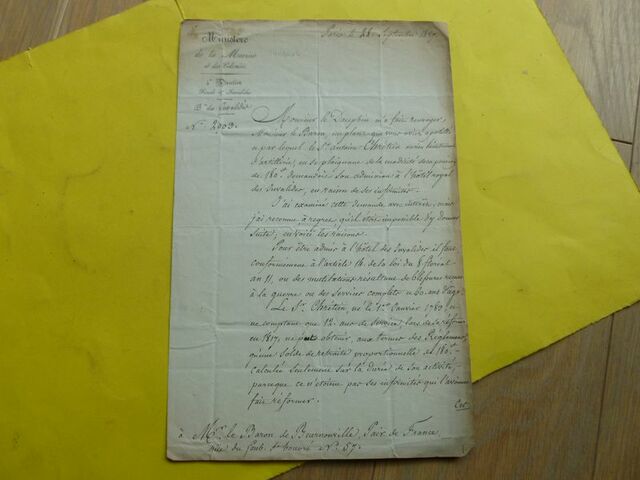 Paris le 28 Septembre 1827
Ministère
de la Marine
et des Colonies
Direction
Fonds & Invalides
Bau des Invalides
N° 2003.
Monsieur le Dauphin m'a fait renvoyer,
Monsieur le Baron, un placet que vous avez apostillé
& par lequel le Sr. Antoine Chrétien ancien lieutenant
d'artillerie, en se plaignant de la modicité de sa pension
de 180f. demandait son admission à l'hôtel royal
des Invalides, en raison de ses infirmités.
J'ai examiné cette demande avec intérêt, mais
j'ai reconnu à regret qu'il était impossible d'y donner
suite; en voici les raisons.
Pour être admis à l'hôtel des Invalides il faut
conformément à l'article 14 de la loi du 8 floréal
an 11, ou des mutilations résultant de blessures reçues
à la guerre ou des services complets & 60 ans d'âge.
Le Sr. Chrétien, né le 1er Janvier 1789 &
ne comptant que 12 ans de service, lors de la réforme
en 1817, ne peut obtenir, aux termes des Réglemens,
qu'une solde de retraite proportionnelle de 180f.
calculée seulement sur la durée de son activité,
parceque ce n'étaient pas ses infirmités qui l'avaient
fait réformer.
à Mr. le Baron de Beurnonville, Pair de France,
rue du faub. St honoré N° 57.